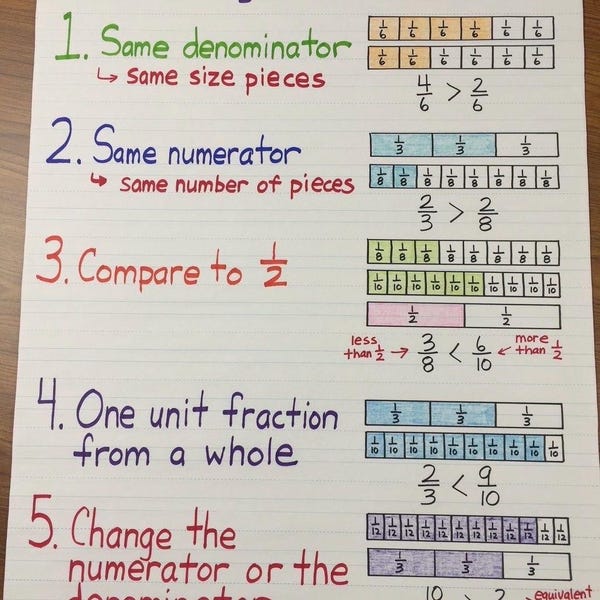 1. Same denominator
↳ same size pieces
1/6 1/6 1/6 1/6 1/6 1/6
1/6 1/6 1/6 1/6 1/6 1/6
4/6 > 2/6
2. Same numerator
↳ same number of pieces
1/3 1/3 1/3
1/8 1/8 1/8 1/8 1/8 1/8 1/8 1/8
2/3 > 2/8
3. Compare to 1/2
1/8 1/8 1/8 1/8 1/8 1/8 1/8 1/8
1/10 1/10 1/10 1/10 1/10 1/10 1/10 1/10 1/10 1/10
1/2 1/2
less than 1/2 → 3/8 < 6/10 ← more than 1/2
4. One unit fraction
from a whole
1/3 1/3 1/3
1/10 1/10 1/10 1/10 1/10 1/10 1/10 1/10 1/10 1/10
2/3 < 9/10
5. Change the
numerator or the
denominator
1/12 1/12 1/12 1/12 1/12 1/12 1/12 1/12 1/12 1/12 1/12 1/12
1/3 1/3 1/3
10 > 2
equivalent